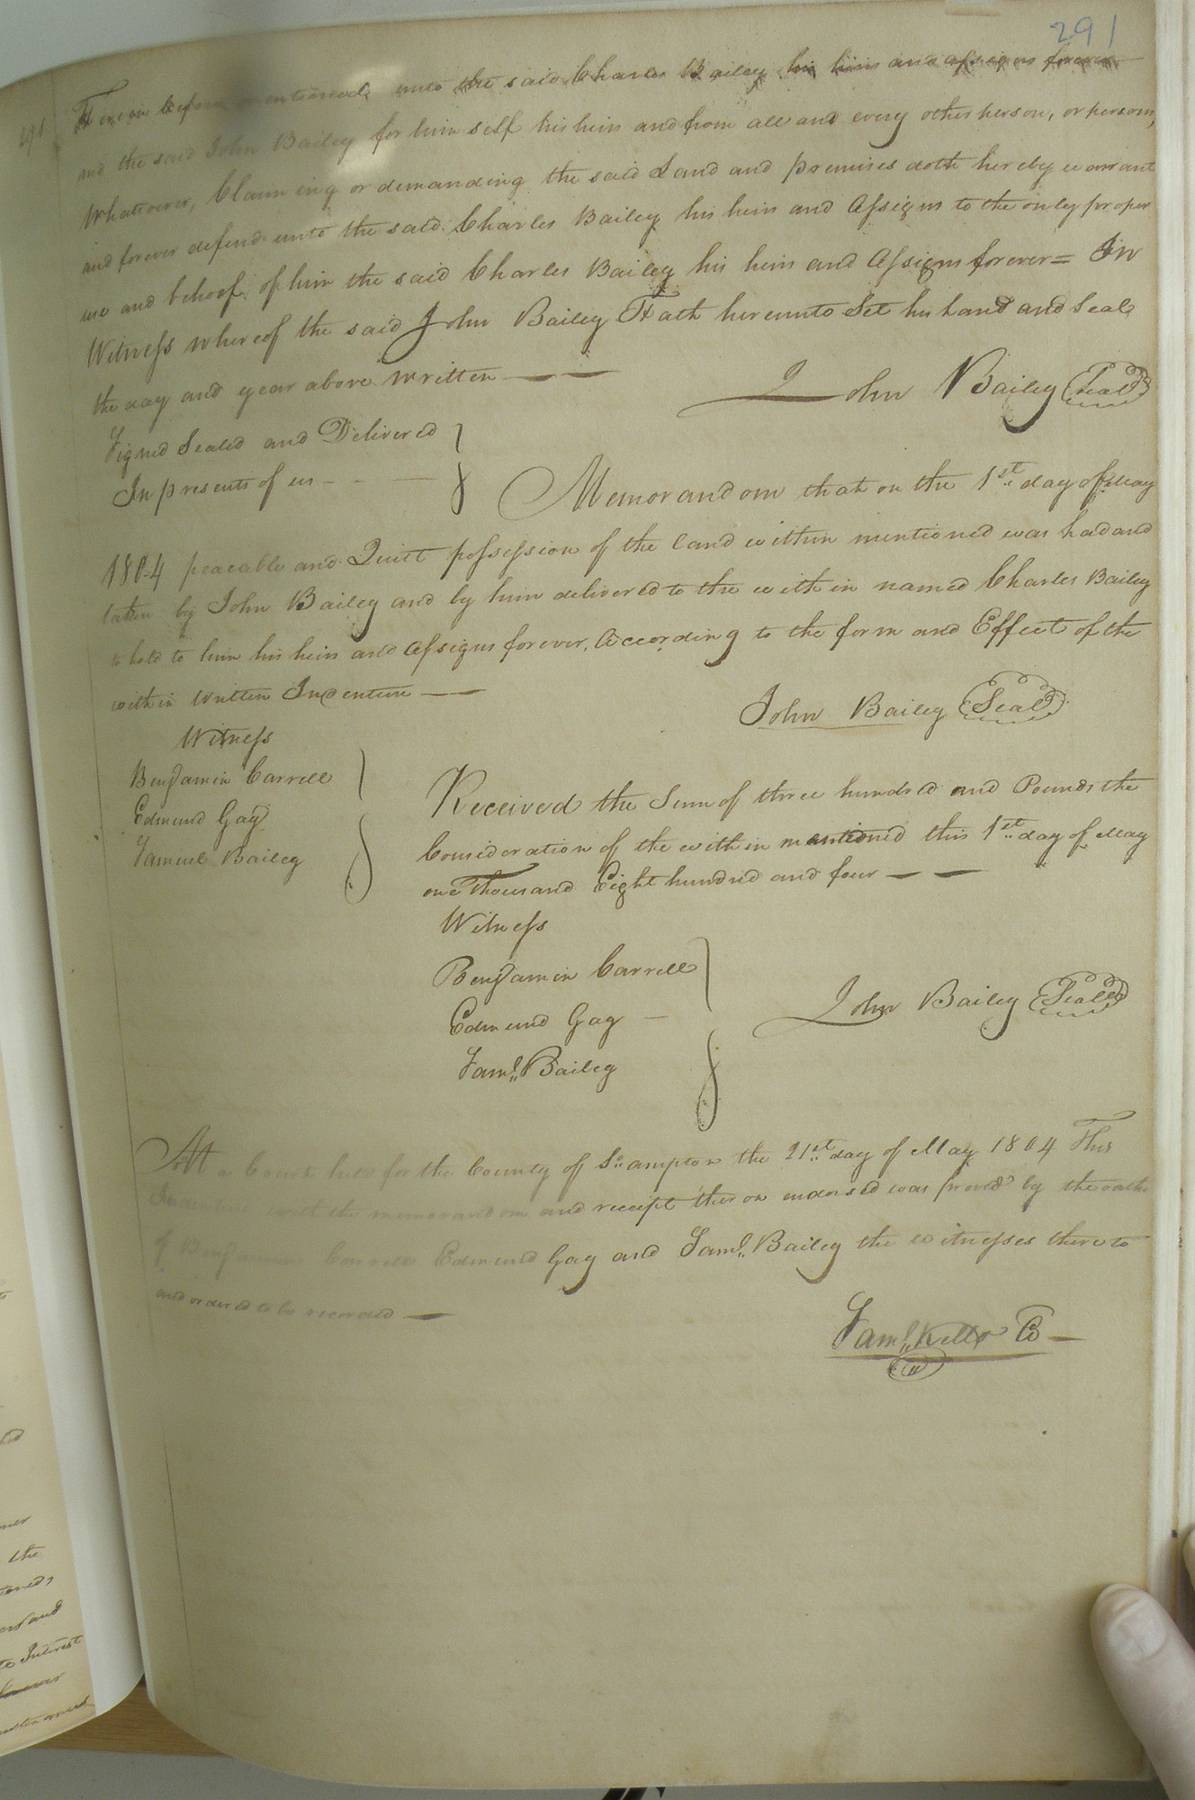 291
291
Herein before mentioned, unto the said Charles Bailey his heirs and assigns forever
and the said John Bailey for him self his heirs and from all and every other person, or persons,
Whatsoever, Claiming or demanding the said Land and premises doth hereby warrant
and forever defend unto the said Charles Bailey his heirs and Assigns to the only proper
use and behoof of him the said Charles Bailey his heirs and Assigns forever = In
Witness whereof the said John Bailey Hath hereunto Set his hand and Seal
the day and year above written
John Bailey Seal
Signed Sealed and Delivered
In presents of us
Memorandom that on the 1st day of May
1804 peacable and Quiet possession of the land within mentioned was had and
taken by John Bailey and by him delivered to the within named Charles Bailey
to hold to him his heirs and assigns forever, According to the form and Effect of the
within written Indenture
John Bailey Seal
Witness
Benjamin Carrell
Edmund Gay
Samuel Bailey
Received the Sum of three hundred and Pounds the
Consideration of the within mentioned this 1st day of May
one Thousand Eight hundred and four
Witness
Benjamin Carrell
Edmund Gay
Saml. Bailey
John Bailey Seal
At a Court held for the County of So.ampton the 21st day of May 1804 This
Indenture with the memorandom and receipt thereon endorsed was proved by the oaths
of Benjamin Carrell Edmund Gay and Saml. Bailey the witnesses thereto
and ordered to be recorded
Saml. Kello C
the
and
to Interest